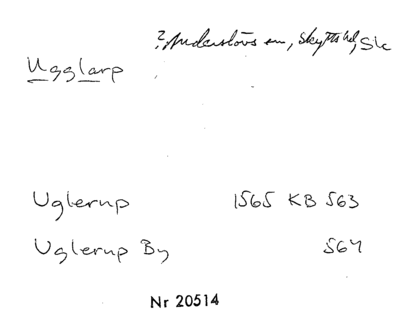 ? Anderslövs sn, Skytts hd, Sk
Ugglarp
Uglerup 1565 KB 563
Uglerup By 564
Nr 20514